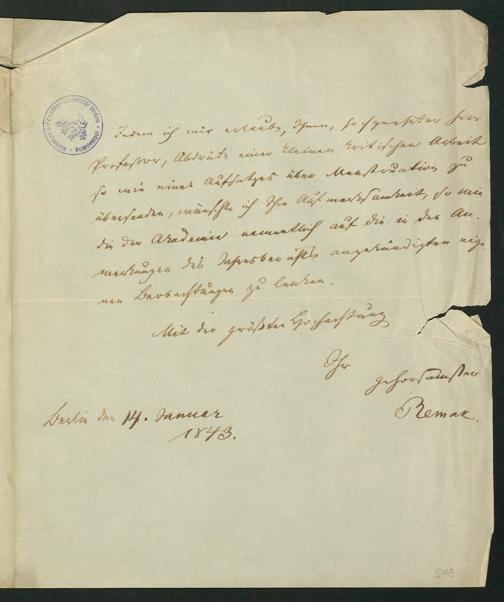 Indem ich mir erlaube, Ihnen, hochgeehrter Herr
Professor, Abdrücke einer kleinen kritischen Arbeit
so wie eines Aufsatzes über Menstruation zu
übersenden, wünschte ich Ihre Aufmerksamkeit, so wie
die der Akademie namentlich auf die in den An-
merkungen des Jahresberichts angekündigten eige-
nen Beobachtungen zu lenken.
Mit der größten Hochachtung
Ihr
gehorsamster
Remak.
Berlin den 14. Januar
1843.
543